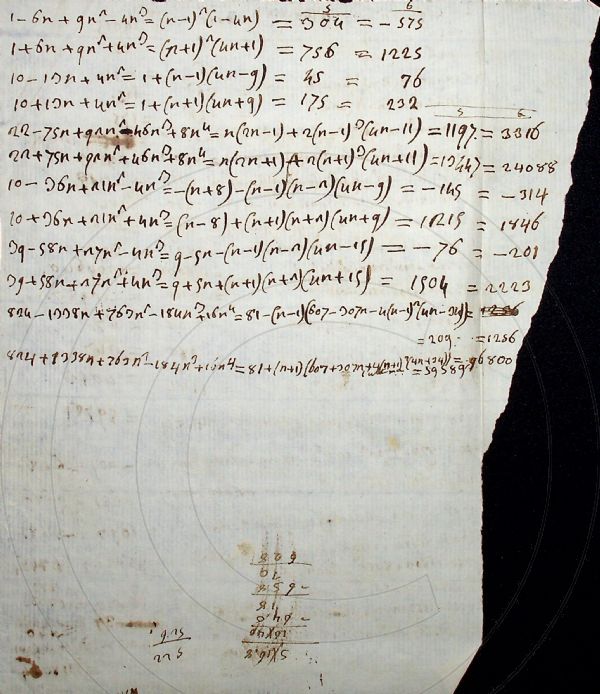 5 6
1-6n+9n²-4n³=(n-1)²(1-4n) = 304 = -575
1+6n+9n²+4n³=(n+1)²(4n+1) = 756 = 1225
10-13n+4n²=1+(n-1)(4n-9) = 45 = 76
10+13n+4n²=1+(n+1)(4n+9) = 175 = 232
5 6
22-75n+92n²-46n³+8n⁴=n(2n-1)+2(n-1)³(4n-11)=1197=3316
22+75n+92n²+46n³+8n⁴=n(2n+1)+2(n+1)³(4n+11)=13447=24088
10-36n+21n²-4n³=-(n+8)-(n-1)(n-2)(4n-9) = -145 = -314
10+36n+21n²+4n³=(n-8)+(n+1)(n+2)(4n+9) = 1215 = 1846
39-58n+27n²-4n³=9-5n-(n-1)(n-2)(4n-15) = -76 = -201
39+58n+27n²+4n³=9+5n+(n+1)(n+2)(4n+15) = 1504 = 2223
824-1338n+763n²-184n³+16n⁴=81-(n-1)(607-307n-4(n-1)²(4n-34))=1256
=209 =1256
824+1338n+763n²-184n³+16n⁴=81+(n+1)(607+307n+4(n+1)²(4n+34))=96800
=59589
925
225